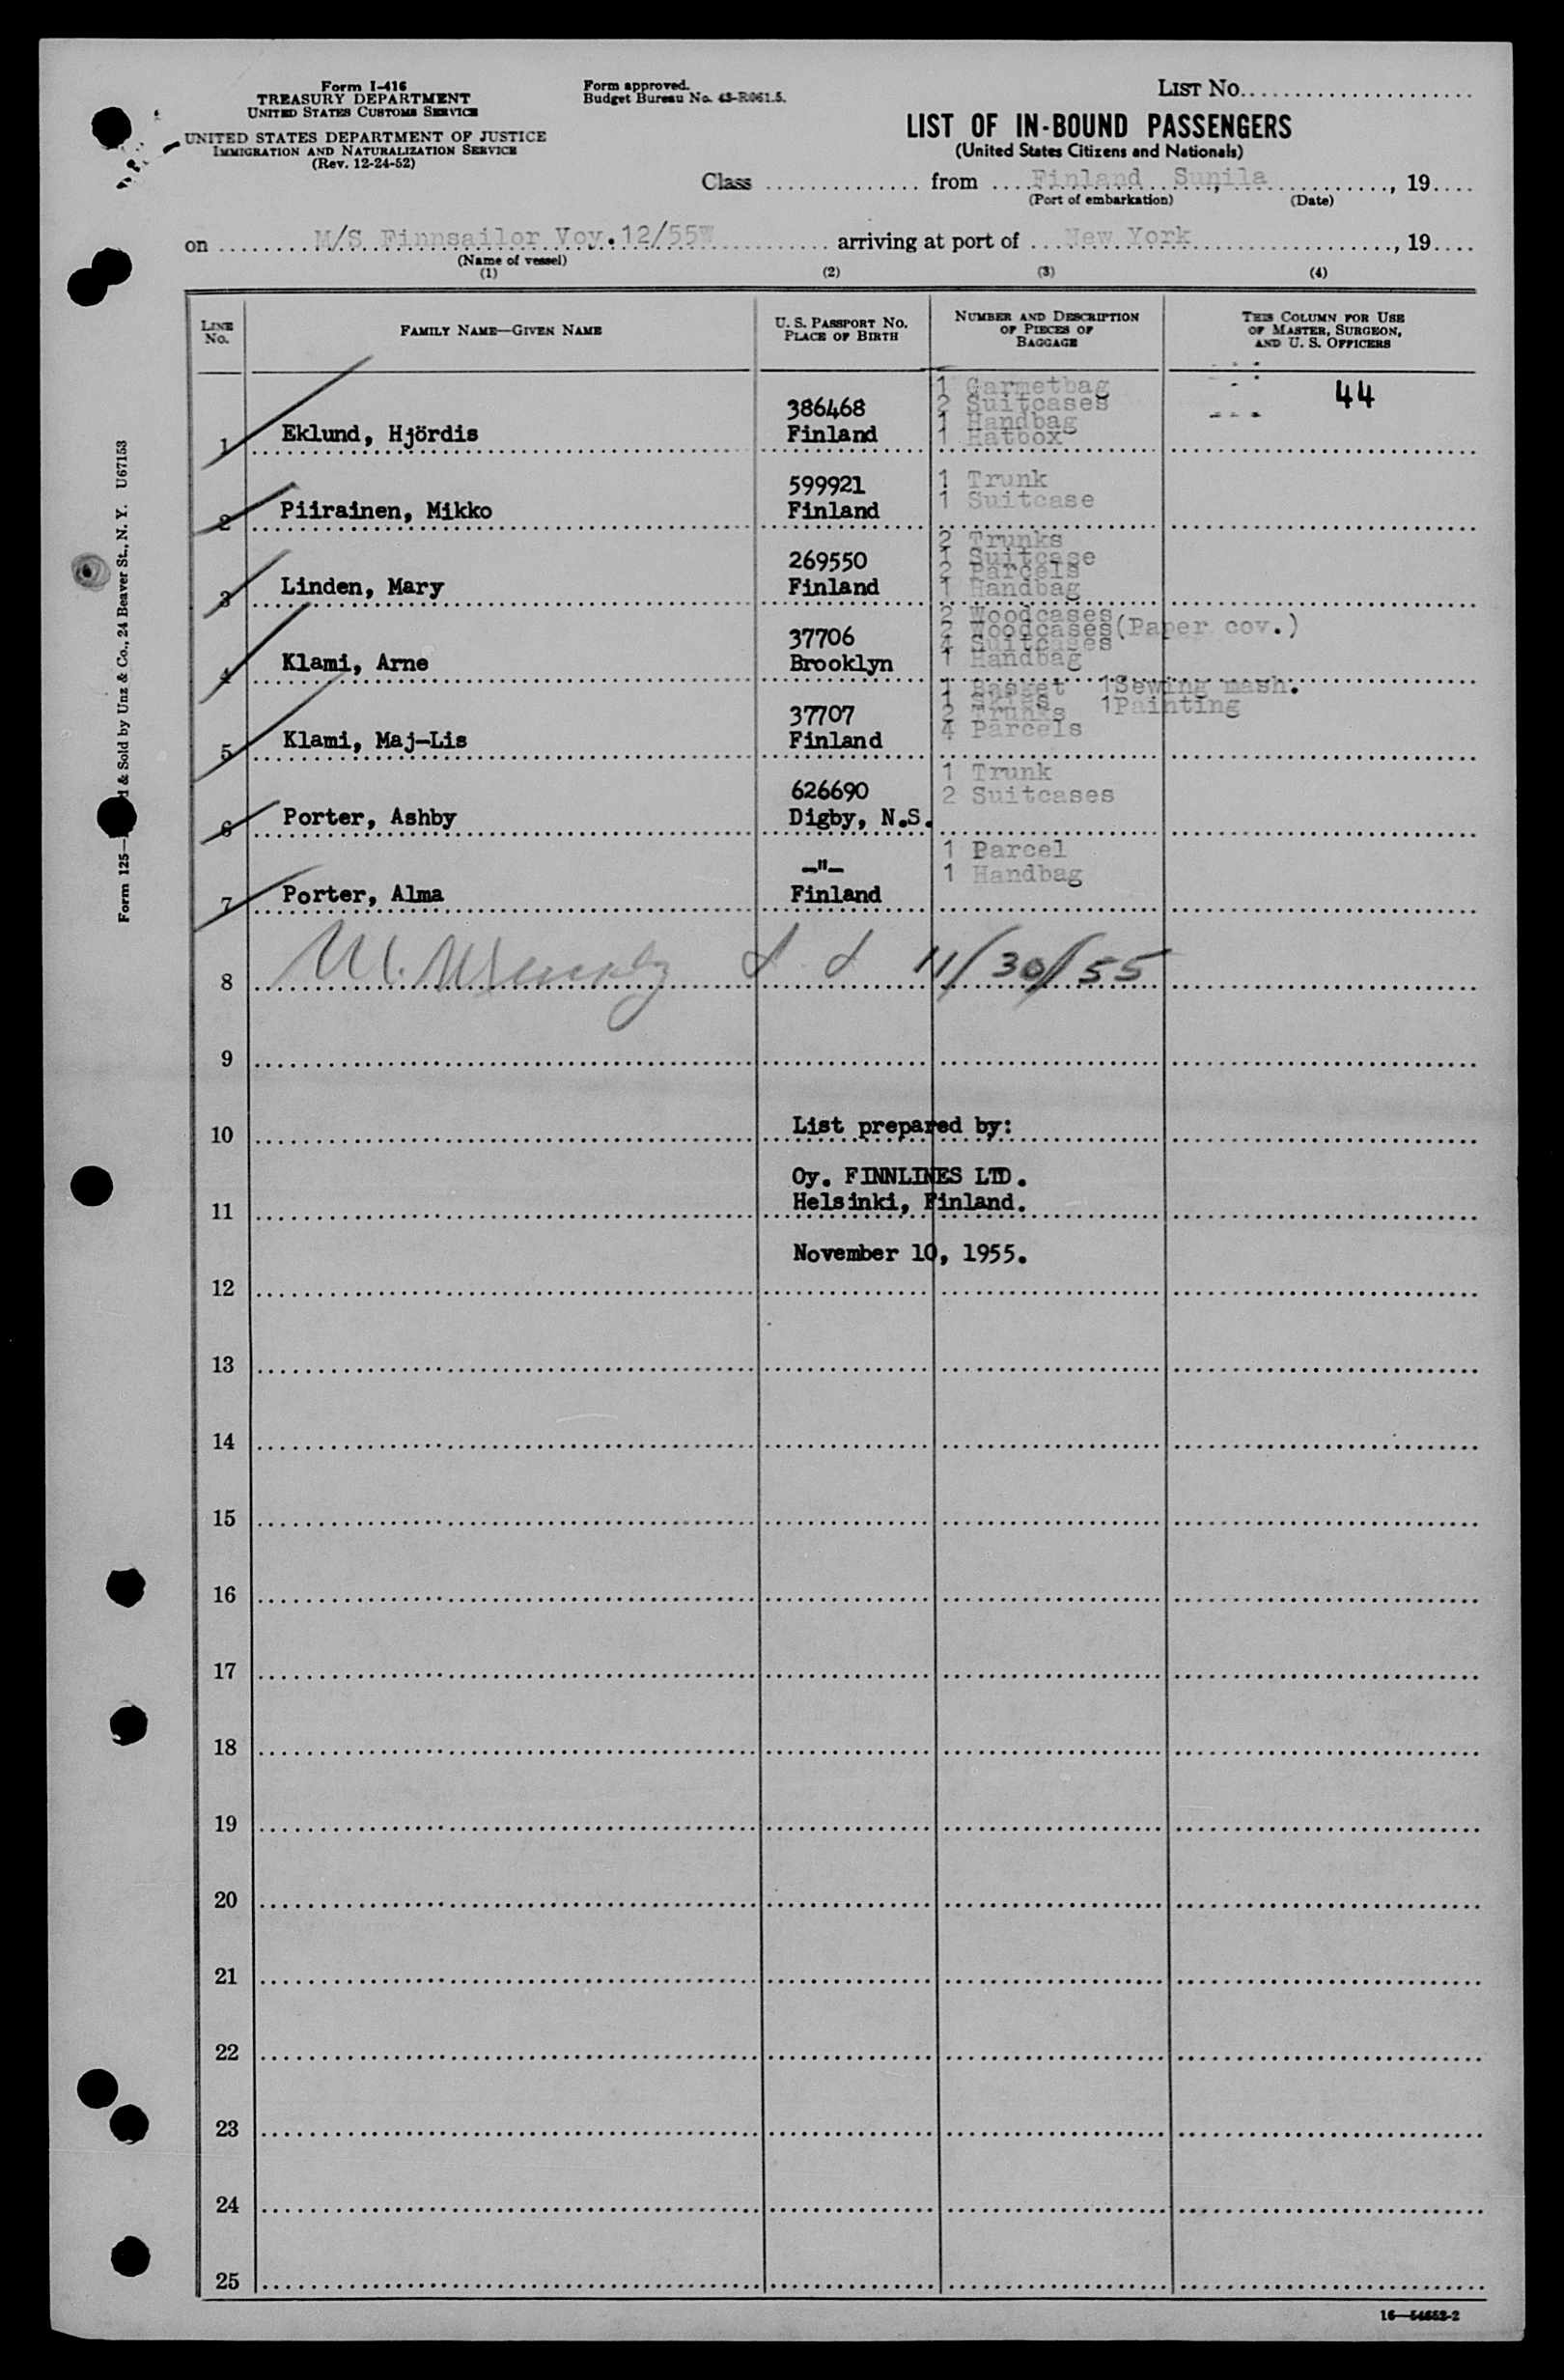 Form I-416
TREASURY DEPARTMENT
UNITED STATES CUSTOMS SERVICE
UNITED STATES DEPARTMENT OF JUSTICE
IMMIGRATION AND NATURALIZATION SERVICE
(Rev. 12-24-52)
Form approved.
Budget Bureau No. 43-R061.5.
LIST No.
LIST OF IN-BOUND PASSENGERS
(United States Citizens and Nationals)
Class from Finland Sunila, , 19
(Port of embarkation) (Date)
on M/S Finnsailor Voy.12/55W arriving at port of New York, 19
(Name of vessel)
(1) (2) (3) (4)
LINE No. FAMILY NAME—GIVEN NAME U. S. PASSPORT No. PLACE OF BIRTH NUMBER AND DESCRIPTION OF PIECES OF BAGGAGE THIS COLUMN FOR USE OF MASTER, SURGEON, AND U. S. OFFICERS
1 Garmetbag
44
386468 2 Suitcases
1 Handbag
1 Eklund, Hjördis Finland 1 Hatbox
599921 1 Trunk
1 Suitcase
2 Piirainen, Mikko Finland
2 Trunks
269550 1 Suitcase
2 Parcels
3 Linden, Mary Finland 1 Handbag
2 Woodcases
37706 2 Woodcases(Paper cov.)
4 Suitcases
4 Klami, Arne Brooklyn 1 Handbag
1 Basket 1Sewing mash.
1 1Painting
37707 2 Trunks
4 Parcels
5 Klami, Maj-Lis Finland
1 Trunk
626690 2 Suitcases
6 Porter, Ashby Digby, N.S.
1 Parcel
-"- 1 Handbag
7 Porter, Alma Finland
8 11/30/55
9
10 List prepared by:
Oy. FINNLINES LTD.
11 Helsinki, Finland.
November 10, 1955.
12
13
14
15
16
17
18
19
20
21
22
23
24
25
16—54652-2
Form 125— d & Sold by Unz & Co., 24 Beaver St., N. Y. U67153